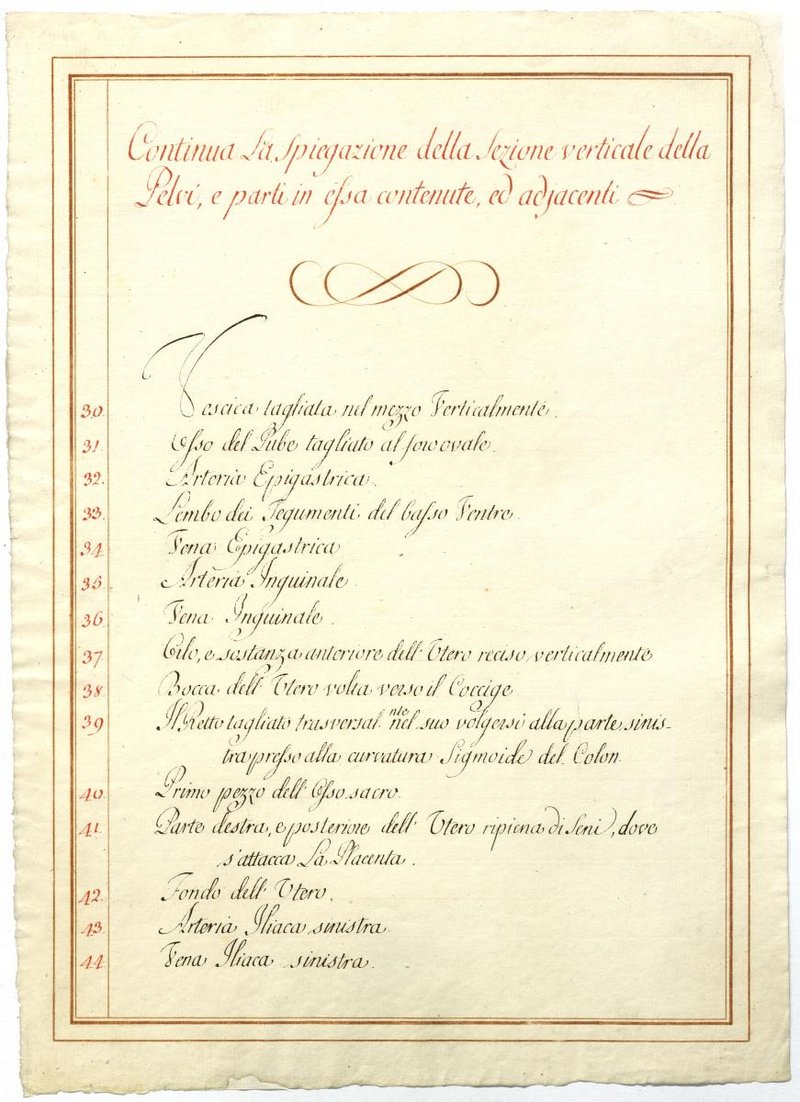 Continua La Spiegazione della Sezione verticale della
Pelvi, e parti in essa contenute, ed adjacenti
30. Vescica tagliata nel mezzo Verticalmente.
31. Osso del Pube tagliato al foro ovale.
32. Arteria Epigastrica.
33. Lembo dei Tegumenti del basso Ventre.
34. Vena Epigastrica
35. Arteria Inguinale.
36. Vena Inguinale.
37. Cilo, e sostanza anteriore dell' Utero reciso verticalmente
38. Bocca dell' Utero volta verso il Coccige
39. Il Retto tagliato trasversal.nte nel suo volgersi alla parte sinis-
tra presso alla curvatura Sigmoide del Colon.
40. Primo pezzo dell' Osso sacro.
41. Parte destra, e posteriore dell' Utero ripiena di Seni, dove
s'attacca La Placenta.
42. Fondo dell' Utero.
43. Arteria Iliaca sinistra.
44. Vena Iliaca sinistra.